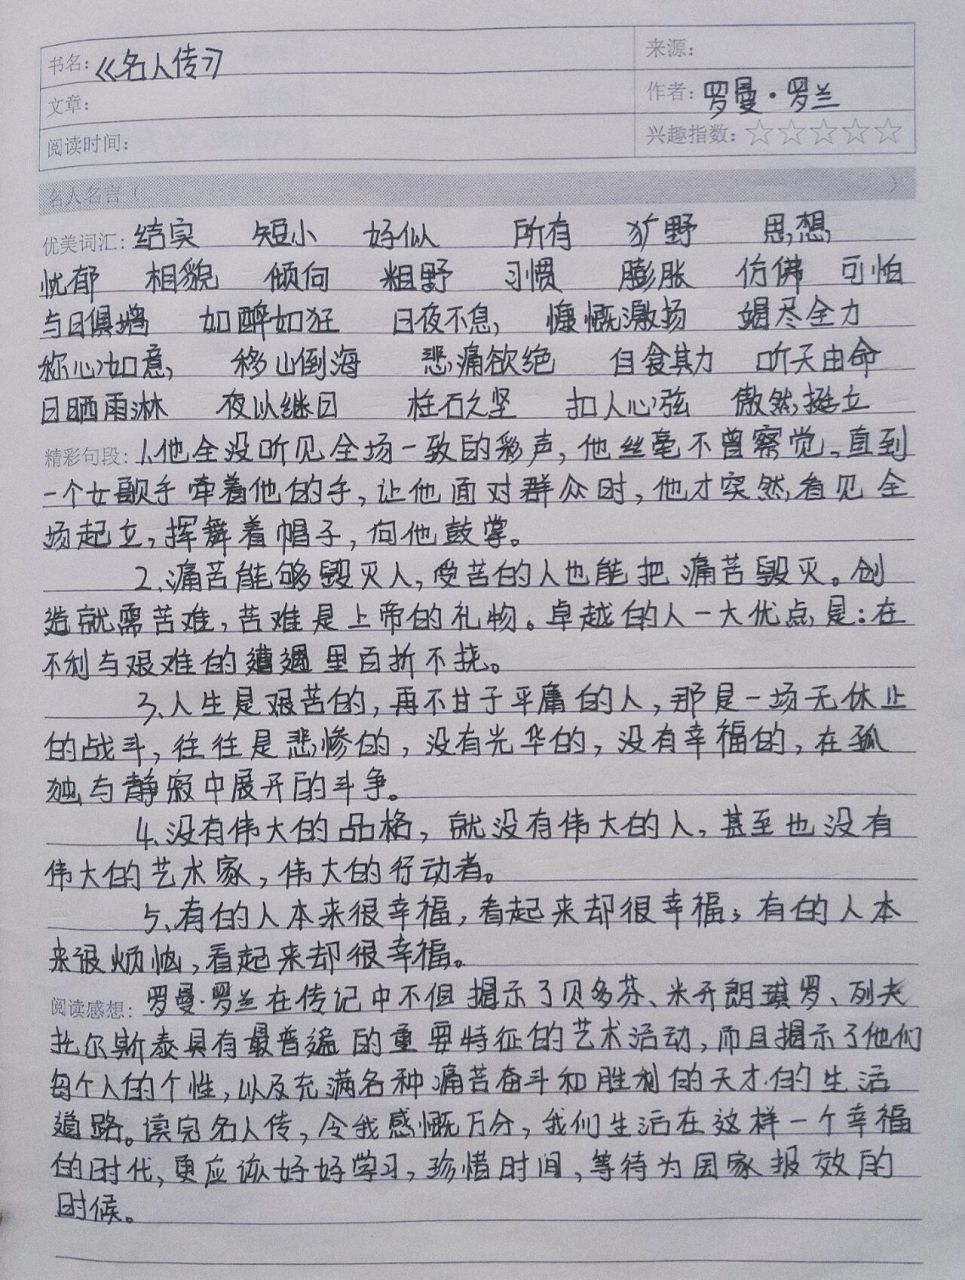 书名：《名人传》
来源：
文章：
作者：罗曼·罗兰
阅读时间：
兴趣指数：☆☆☆☆☆
名人名言（ ）
优美词汇：结实 短小 好似 所有 犷野 思想
忧郁 相貌 倾向 粗野 习惯 膨胀 仿佛 可怕
与日俱增 如醉如狂 日夜不息 慷慨激扬 竭尽全力
称心如意 移山倒海 悲痛欲绝 自食其力 听天由命
日晒雨淋 夜以继日 柱石之坚 扣人心弦 傲然挺立
精彩句段：1、他全没听见全场一致的彩声，他丝毫不曾察觉。直到
一个女歌手牵着他的手，让他面对群众时，他才突然看见全
场起立，挥舞着帽子，向他鼓掌。
2、痛苦能够毁灭人，受苦的人也能把痛苦毁灭。创
造就需苦难，苦难是上帝的礼物。卓越的人一大优点是：在
不利与艰难的遭遇里百折不挠。
3、人生是艰苦的，再不甘于平庸的人，那是一场无休止
的战斗，往往是悲惨的，没有光华的，没有幸福的，在孤
独与静寂中展开的斗争。
4、没有伟大的品格，就没有伟大的人，甚至也没有
伟大的艺术家，伟大的行动者。
5、有的人本来很幸福，看起来却很幸福；有的人本
来很烦恼，看起来却很幸福。
阅读感想：罗曼·罗兰在传记中不但揭示了贝多芬、米开朗琪罗、列夫
托尔斯泰具有最普遍的重要特征的艺术活动，而且揭示了他们
每个人的个性，以及充满各种痛苦奋斗和胜利的天才的生活
道路。读完名人传，令我感慨万分，我们生活在这样一个幸福
的时代，更应该好好学习，珍惜时间，等待为国家报效的
时候。